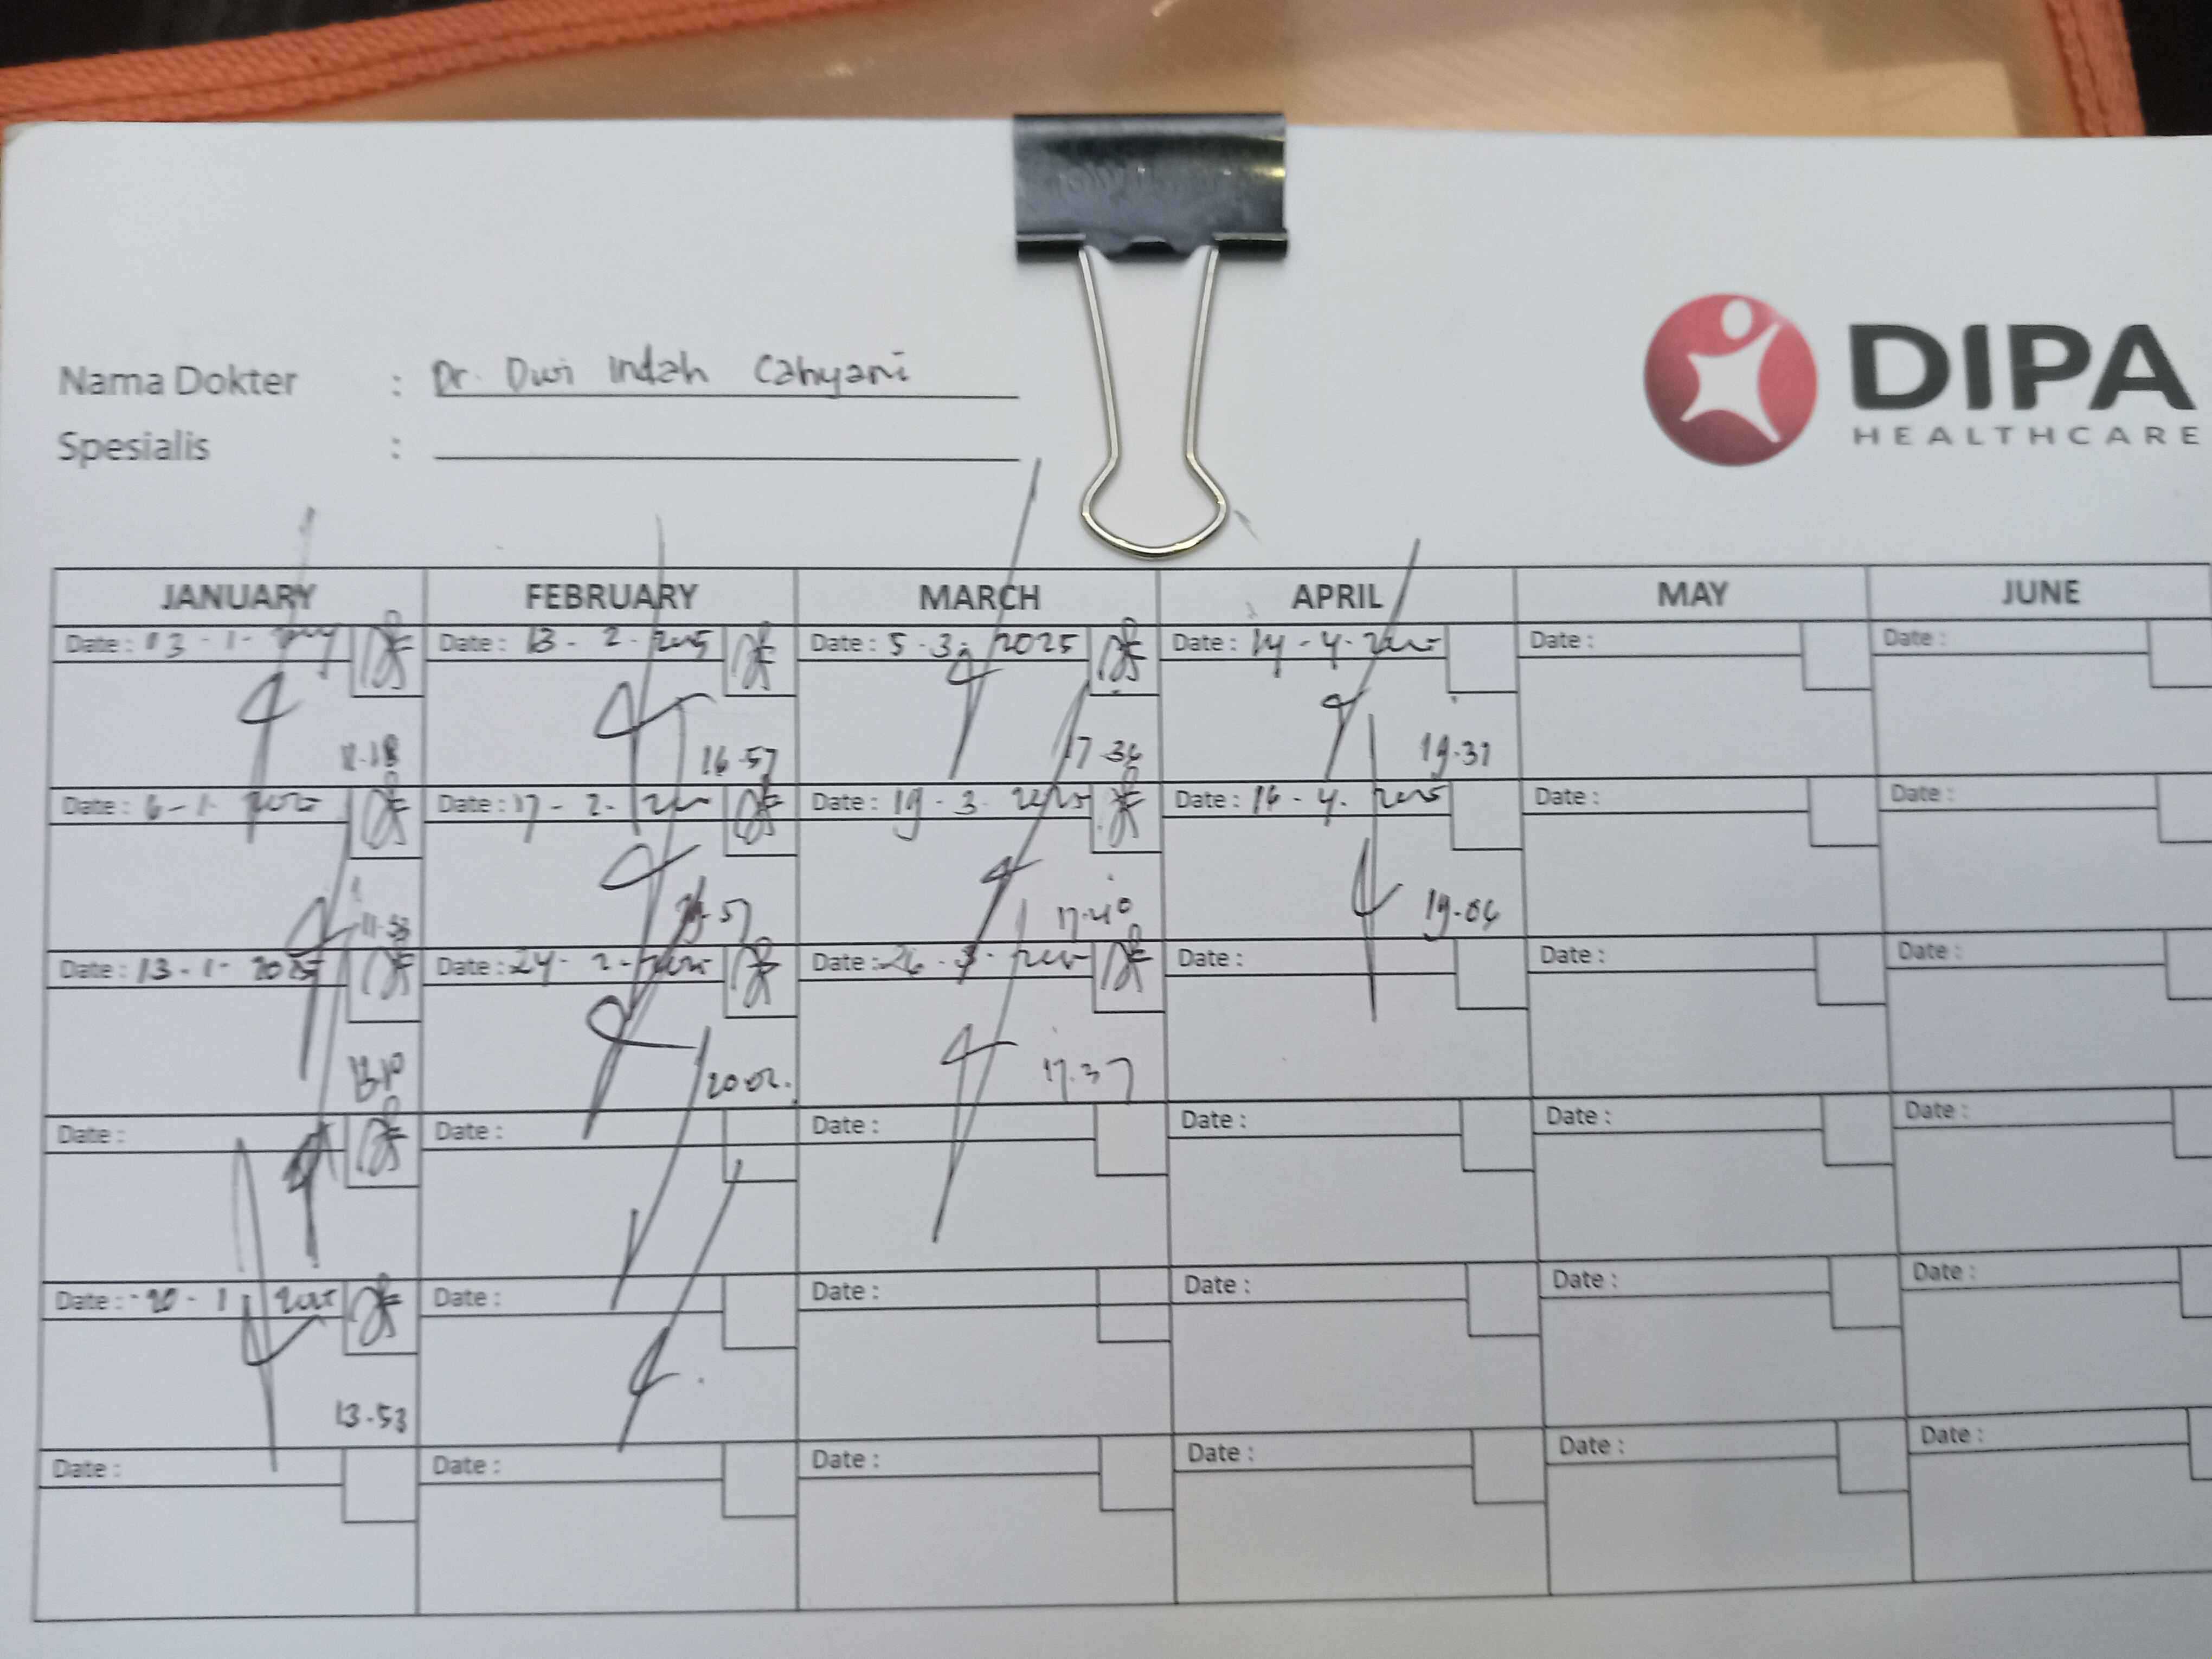 Nama Dokter : Dr. Dwi Indah Cahyani
Spesialis :
DIPA
HEALTHCARE
JANUARY FEBRUARY MARCH APRIL MAY JUNE
Date : 13 - 2 - 2025 Date : 5 - 3 - 2025 Date : 14 - 4 - 2025 Date : Date :
16.57 17.36 19.31
Date : 6 - 1 - 2025 Date : 17 - 2 - 2025 Date : 19 - 3 - 2025 Date : 16 - 4 - 2025 Date : Date :
11.53 17.40 19.06
Date : 13 - 1 - 2025 Date : 24 - 2 - 2025 Date : 26 - 3 - 2025 Date : Date : Date :
13.10 20.02. 17.37
Date : Date : Date : Date : Date : Date :
Date : 20 - 1 - 2025 Date : Date : Date : Date : Date :
13.53
Date : Date : Date : Date : Date : Date :